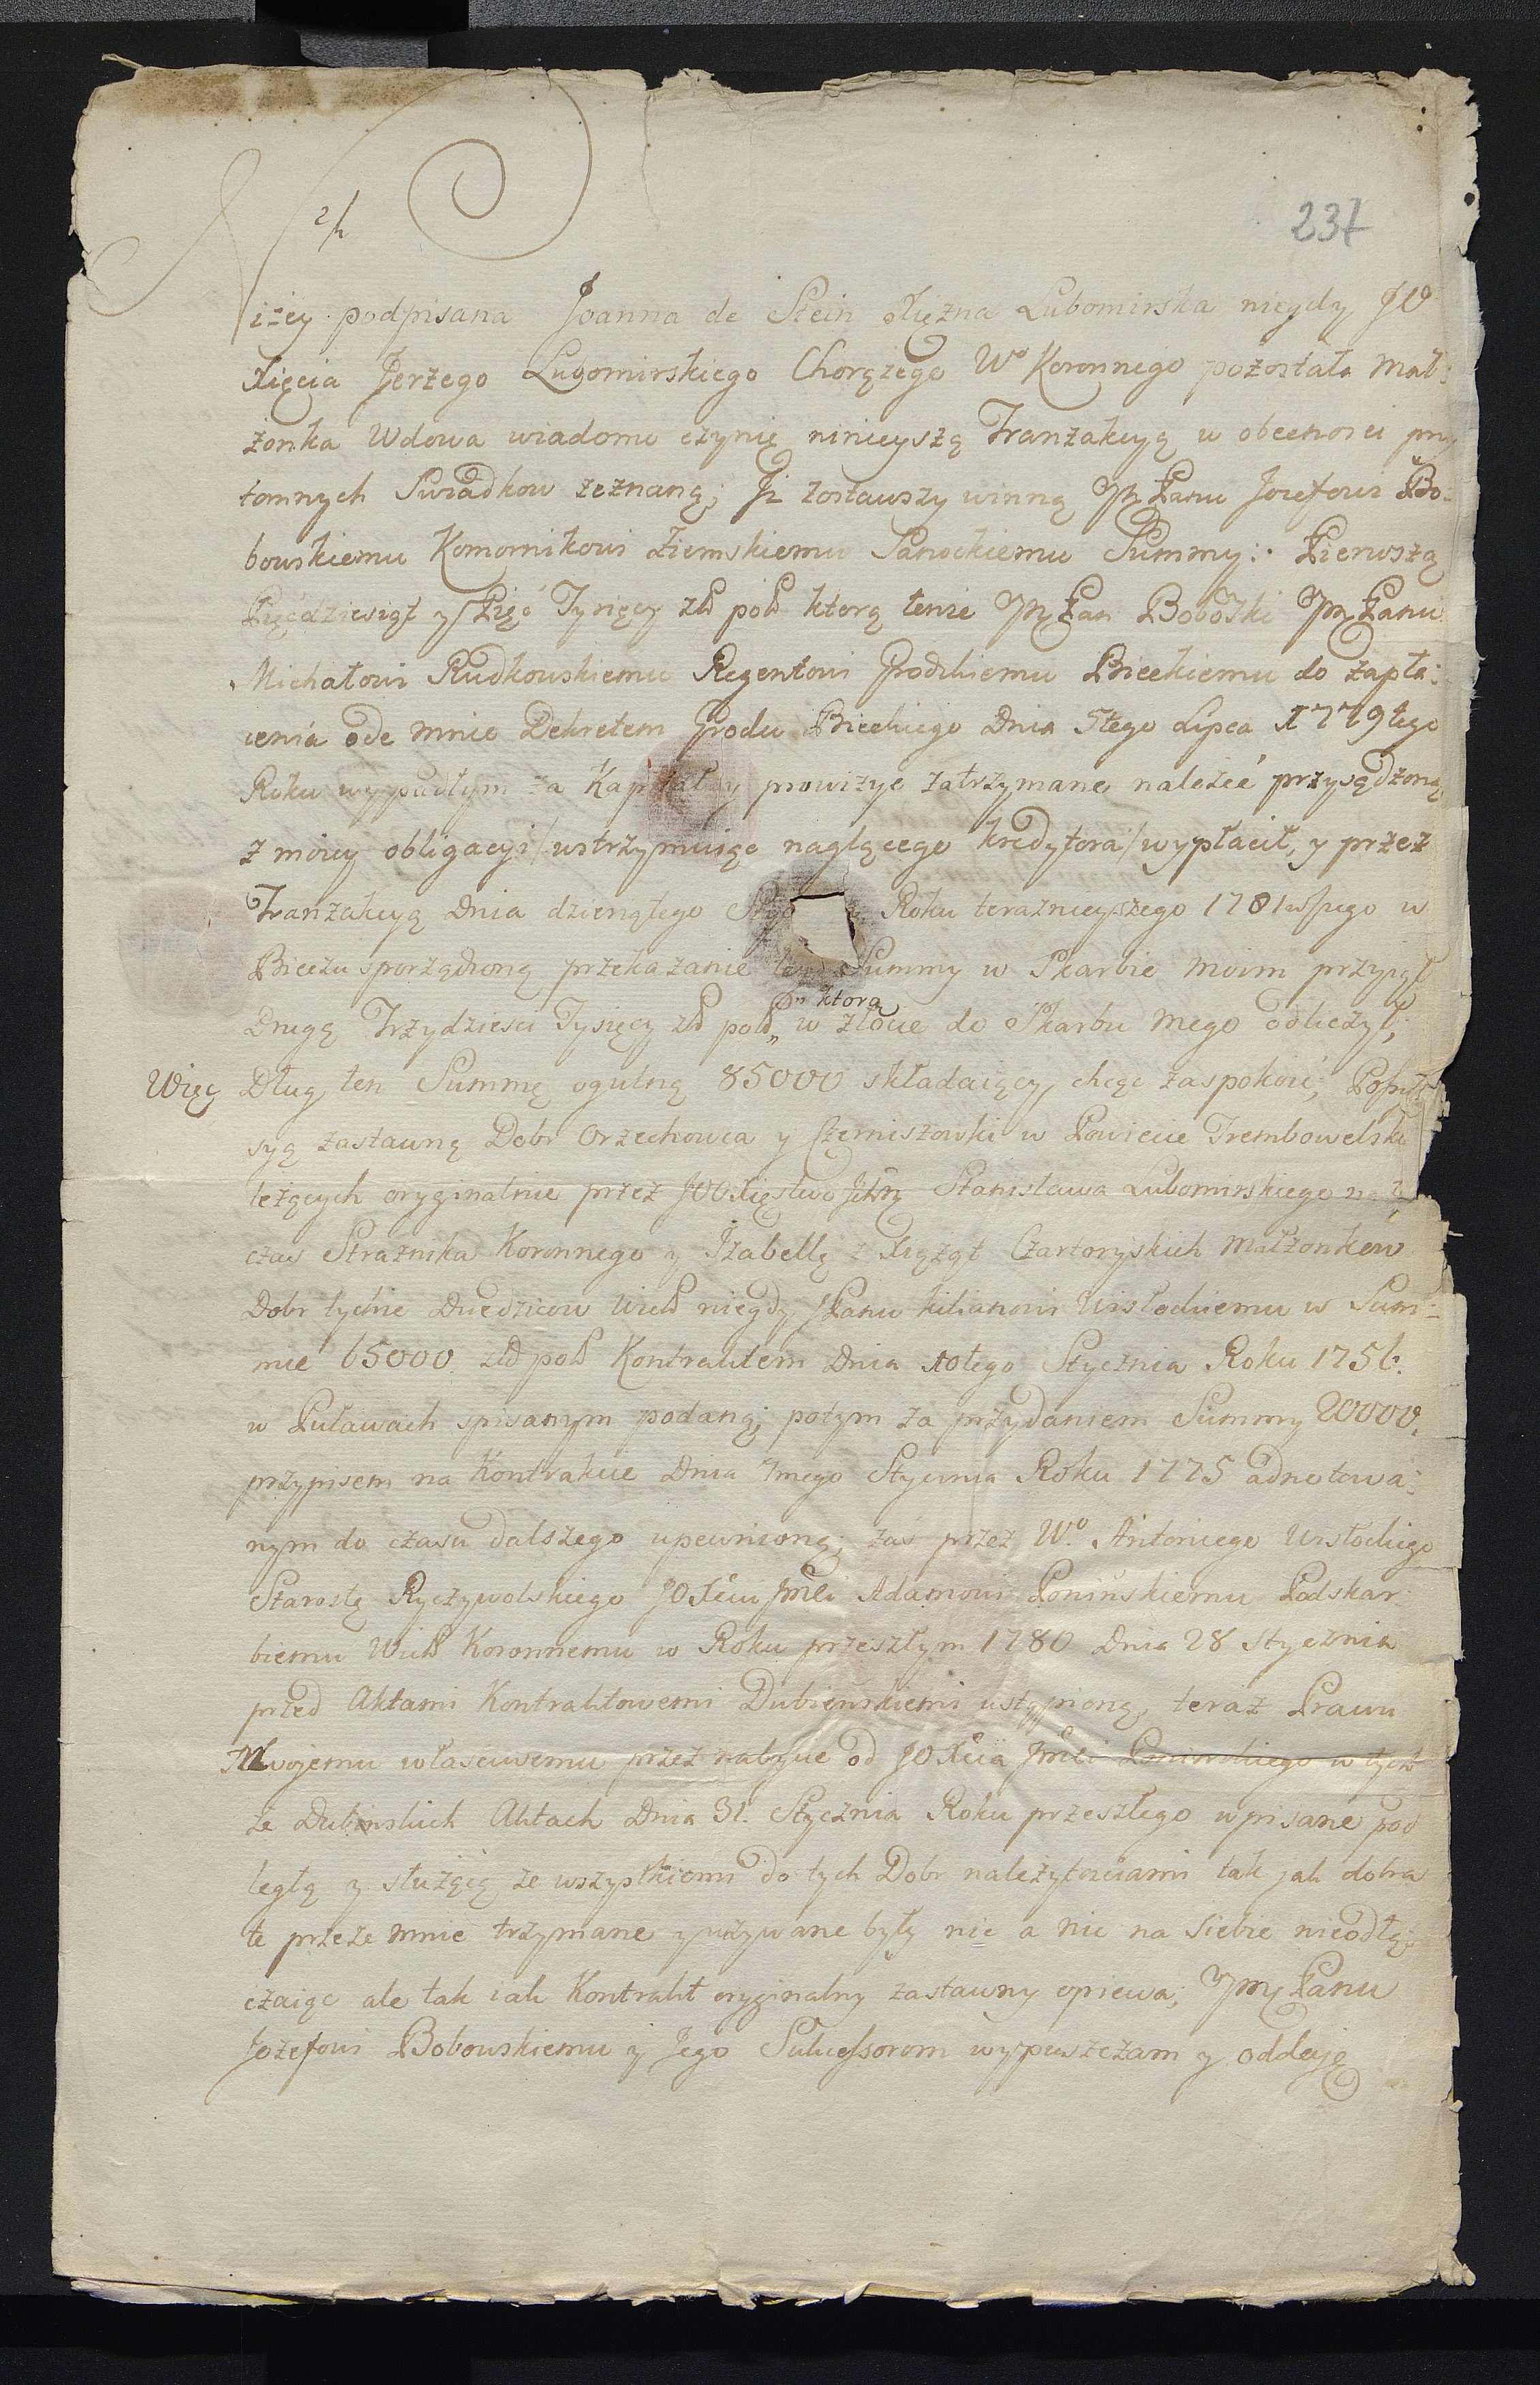 237
Niżey podpisana Joanna de Stein Xiężna Lubomirska niegdy JO
Xięcia Jerzego Lubomirskiego Chorążego Wo Koronnego pozostała Mał:
żonka Wdowa wiadomo czynię ninieyszą Tranzakcyą w obecnosci przy
tomnych Swiadkow zeznaną, Jż zostawszy winną Jm Panu Jozefowi Bo:
bowskiemu Komornikowi Ziemskiemu Sanockiemu Summy: Pierwszą
Pięćdziesiąt y Pięć Tysięcy złł poll ktorą tenże Jm Pan Bobowski Jm Panu
Michałowi Rudkowskiemu Regentowi Grodzkiemu Bieckiemu do zapła:
cenia ode mnie Dekretem Grodu Bieckiego Dnia 5tego Lipca 1779tego
Roku wypadłym za Kapitał y prowizye zatrzymane należeć przysądzoną
z moiey obligacyi /wstrzymuiąc naglącego kredytora/ wypłacił, y przez
Tranzakcyą Dnia dziewątego Roku teraznieyszego 1781wszego w
Bieczu sporządzoną przekazanie tey Summy w Skarbie moim przyiął
Drugą Trzydziesci Tysięcy złł poll „ktorą w złocie do Skarbu mego odliczył;
Więc Dług ten Summę ogulną 85000 składaiący, chcąc zaspokoić; Posses
syą zastawną Dobr Orzechowca y Czerniszowki w Powiecie Trembowelski
leżących oryginalnie przez JOO Xięstwo Jchm Stanisława Lubomirskiego na ten
czas Strażnika Koronnego y Jzabellę z Xiążąt Czartoryskich Małżonkow
Dobr tychże Dziedzicow Wiell niegdy JPanu Kilianowi Wisłockiemu w Sum:
mie 65000 złł poll Kontraktem Dnia 10tego Stycznia Roku 1756.
w Puławach spisanym podaną; potym za przydaniem Summy 20000.
przypisem na Kontrakcie Dnia 7mego Stycznia Roku 1775 adnotowa:
nym do czasu dalszego upewnioną; zaś przez Wo. Antoniego Wisłockiego
Starostę Ryczywolskiego JO Xciu Jmci Adamowi Ponińskiemu Podskar:
biemu Wiell Koronnemu w Roku przeszłym 1780 Dnia 28 Stycznia
przed Aktami Kontraktowemi Dubieńskiemi ustąpioną, teraz Prawu
Moiemu własciwemu przez nabycie od JO Xcia Jmci Ponińskiego w tych
że Dubinskich Aktach Dnia 31. Stycznia Roku przeszłego wpisane pod
ległą y służącą ze wszystkiemi do tych Dobr należytosciami tak jak dobra
te przeze mnie trzymane y używane były nic a nic na siebie nieodłą:
czaiąc ale tak iak Kontrakt oryginalny zastawny opiewa; Jm Panu
Jozefowi Bobowskiemu y Jego Sukcessorom wypuszczam y oddaię